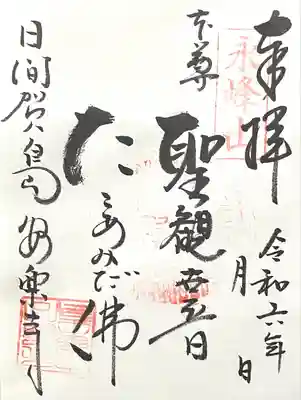 奉拝
永峰山
令和六年
月
日
本尊
聖観世音
たこあみだ佛
日間賀島安楽寺